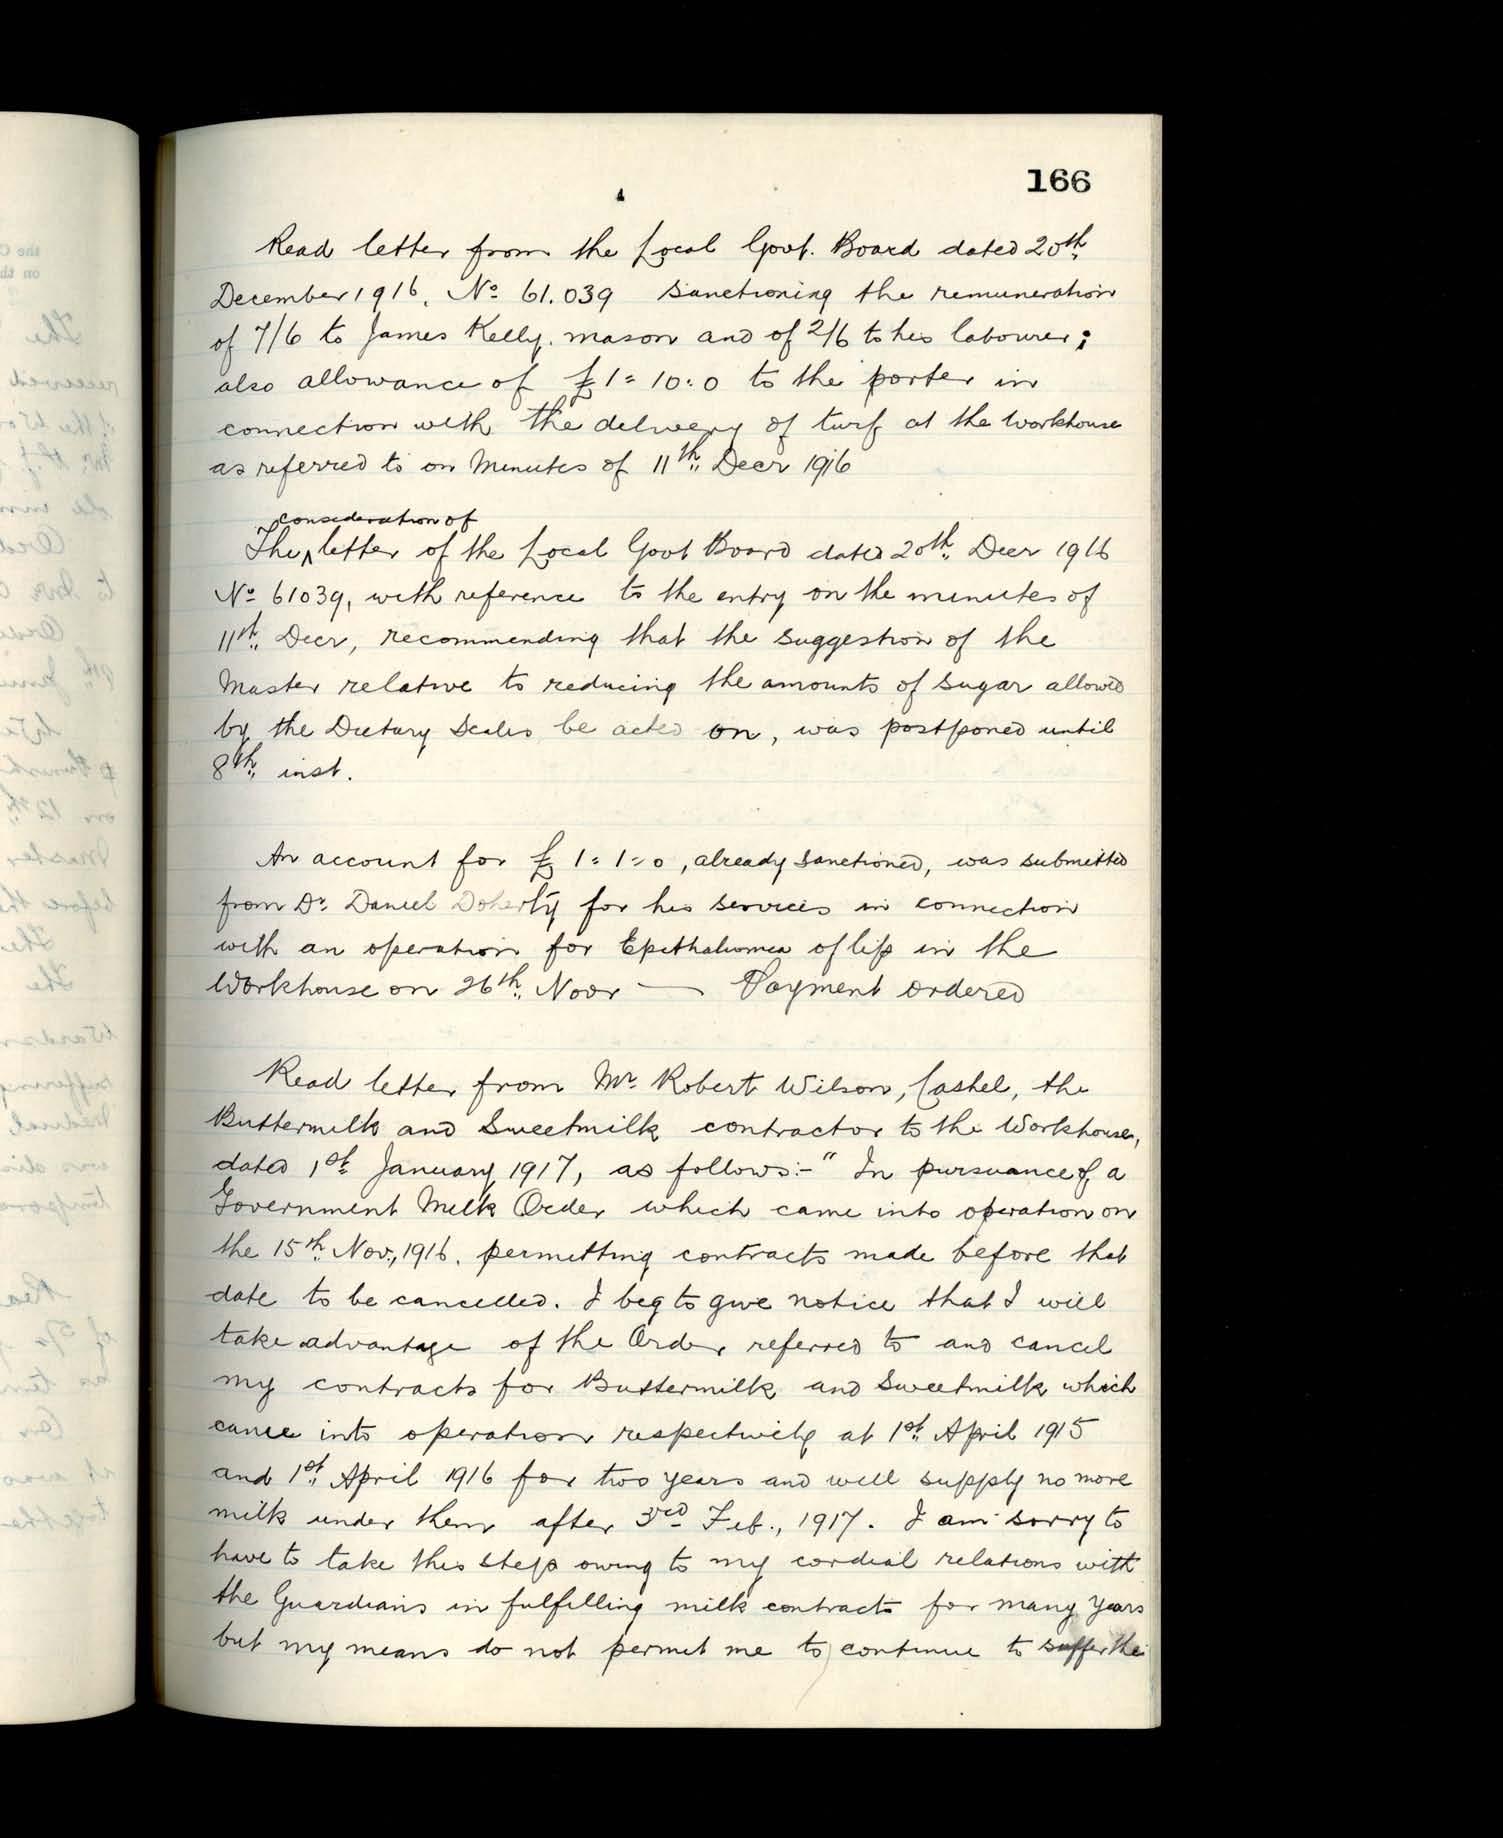 166
Read letter from the Local Govt. Board dated 20th
December 1916, No 61.039 sanctioning the remuneration
of 7/6 to James Kelly, mason and of 2/6 to his labourer;
also allowance of £1=10:0 to the porter in
connection with the delivery of turf at the Workhouse
as referred to on Minutes of 11th Decr 1916
consideration of
The letter of the Local Govt Board dated 20th Decr 1916
No 61039, with reference to the entry on the minutes of
11th Decr, recommending that the suggestion of the
Master relative to reducing the amounts of sugar allowed
by the Dietary Scales be acted on, was postponed until
8th inst.
An account for £1=1=0, already sanctioned, was submitted
from Dr. Daniel Doherty for his services in connection
with an operation for Epithalioma of lip in the
Workhouse on 26th Novr — Payment ordered
Read letter from Mr. Robert Wilson, Cashel, the
Buttermilk and Sweetmilk contractor to the Workhouse,
dated 1st January 1917, as follows:- "In pursuance of a
Government Milk Order which came into operation on
the 15th Nov., 1916. permitting contracts made before that
date to be cancelled. I beg to give notice that I will
take advantage of the Order referred to and cancel
my contracts for Buttermilk and Sweetmilk which
came into operation respectively at 1st April 1915
and 1st April 1916 for two years and will supply no more
milk under them after 3rd Feb., 1917. I am sorry to
have to take this step owing to my cordial relations with
the Guardians in fulfilling milk contracts for many years
but my means do not permit me to continue to suffer the